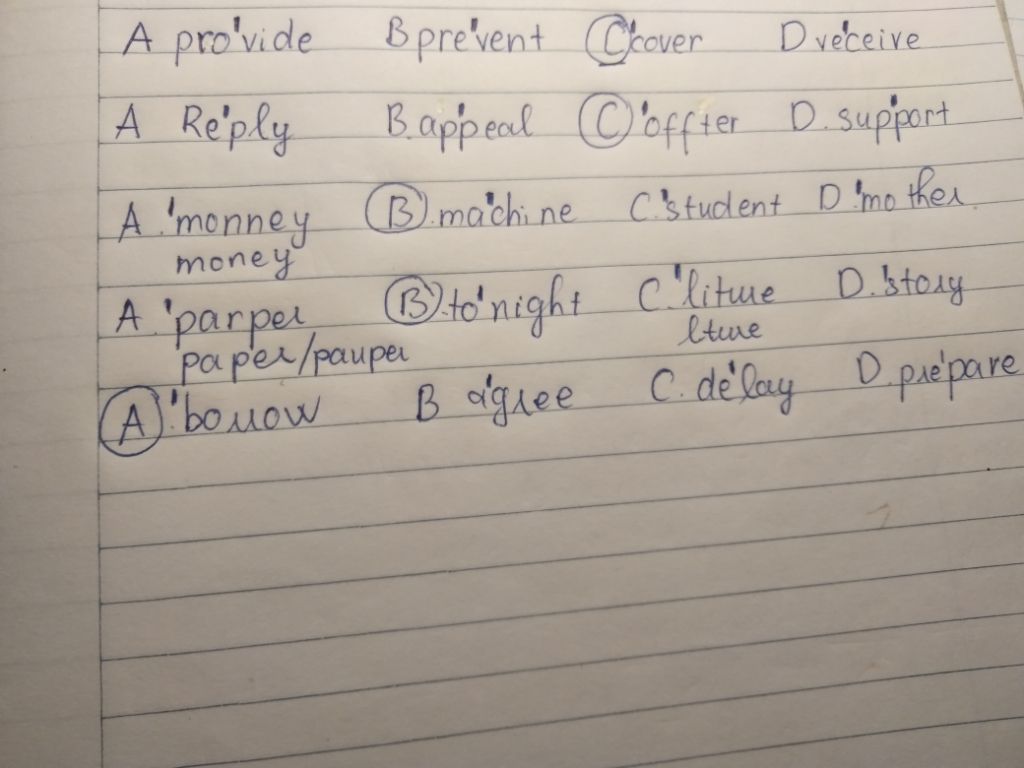 A pro'vide B pre'vent C 'cover D re'ceive
A Re'ply B. a'ppeal C 'offter D. su'pport
A. 'monney B. ma'chine C. 'student D 'mother
money
A. 'parper B. to'night C. 'liture D. 'story
paper/pauper lture
A. 'borrow B a'gree C. de'lay D. pre'pare